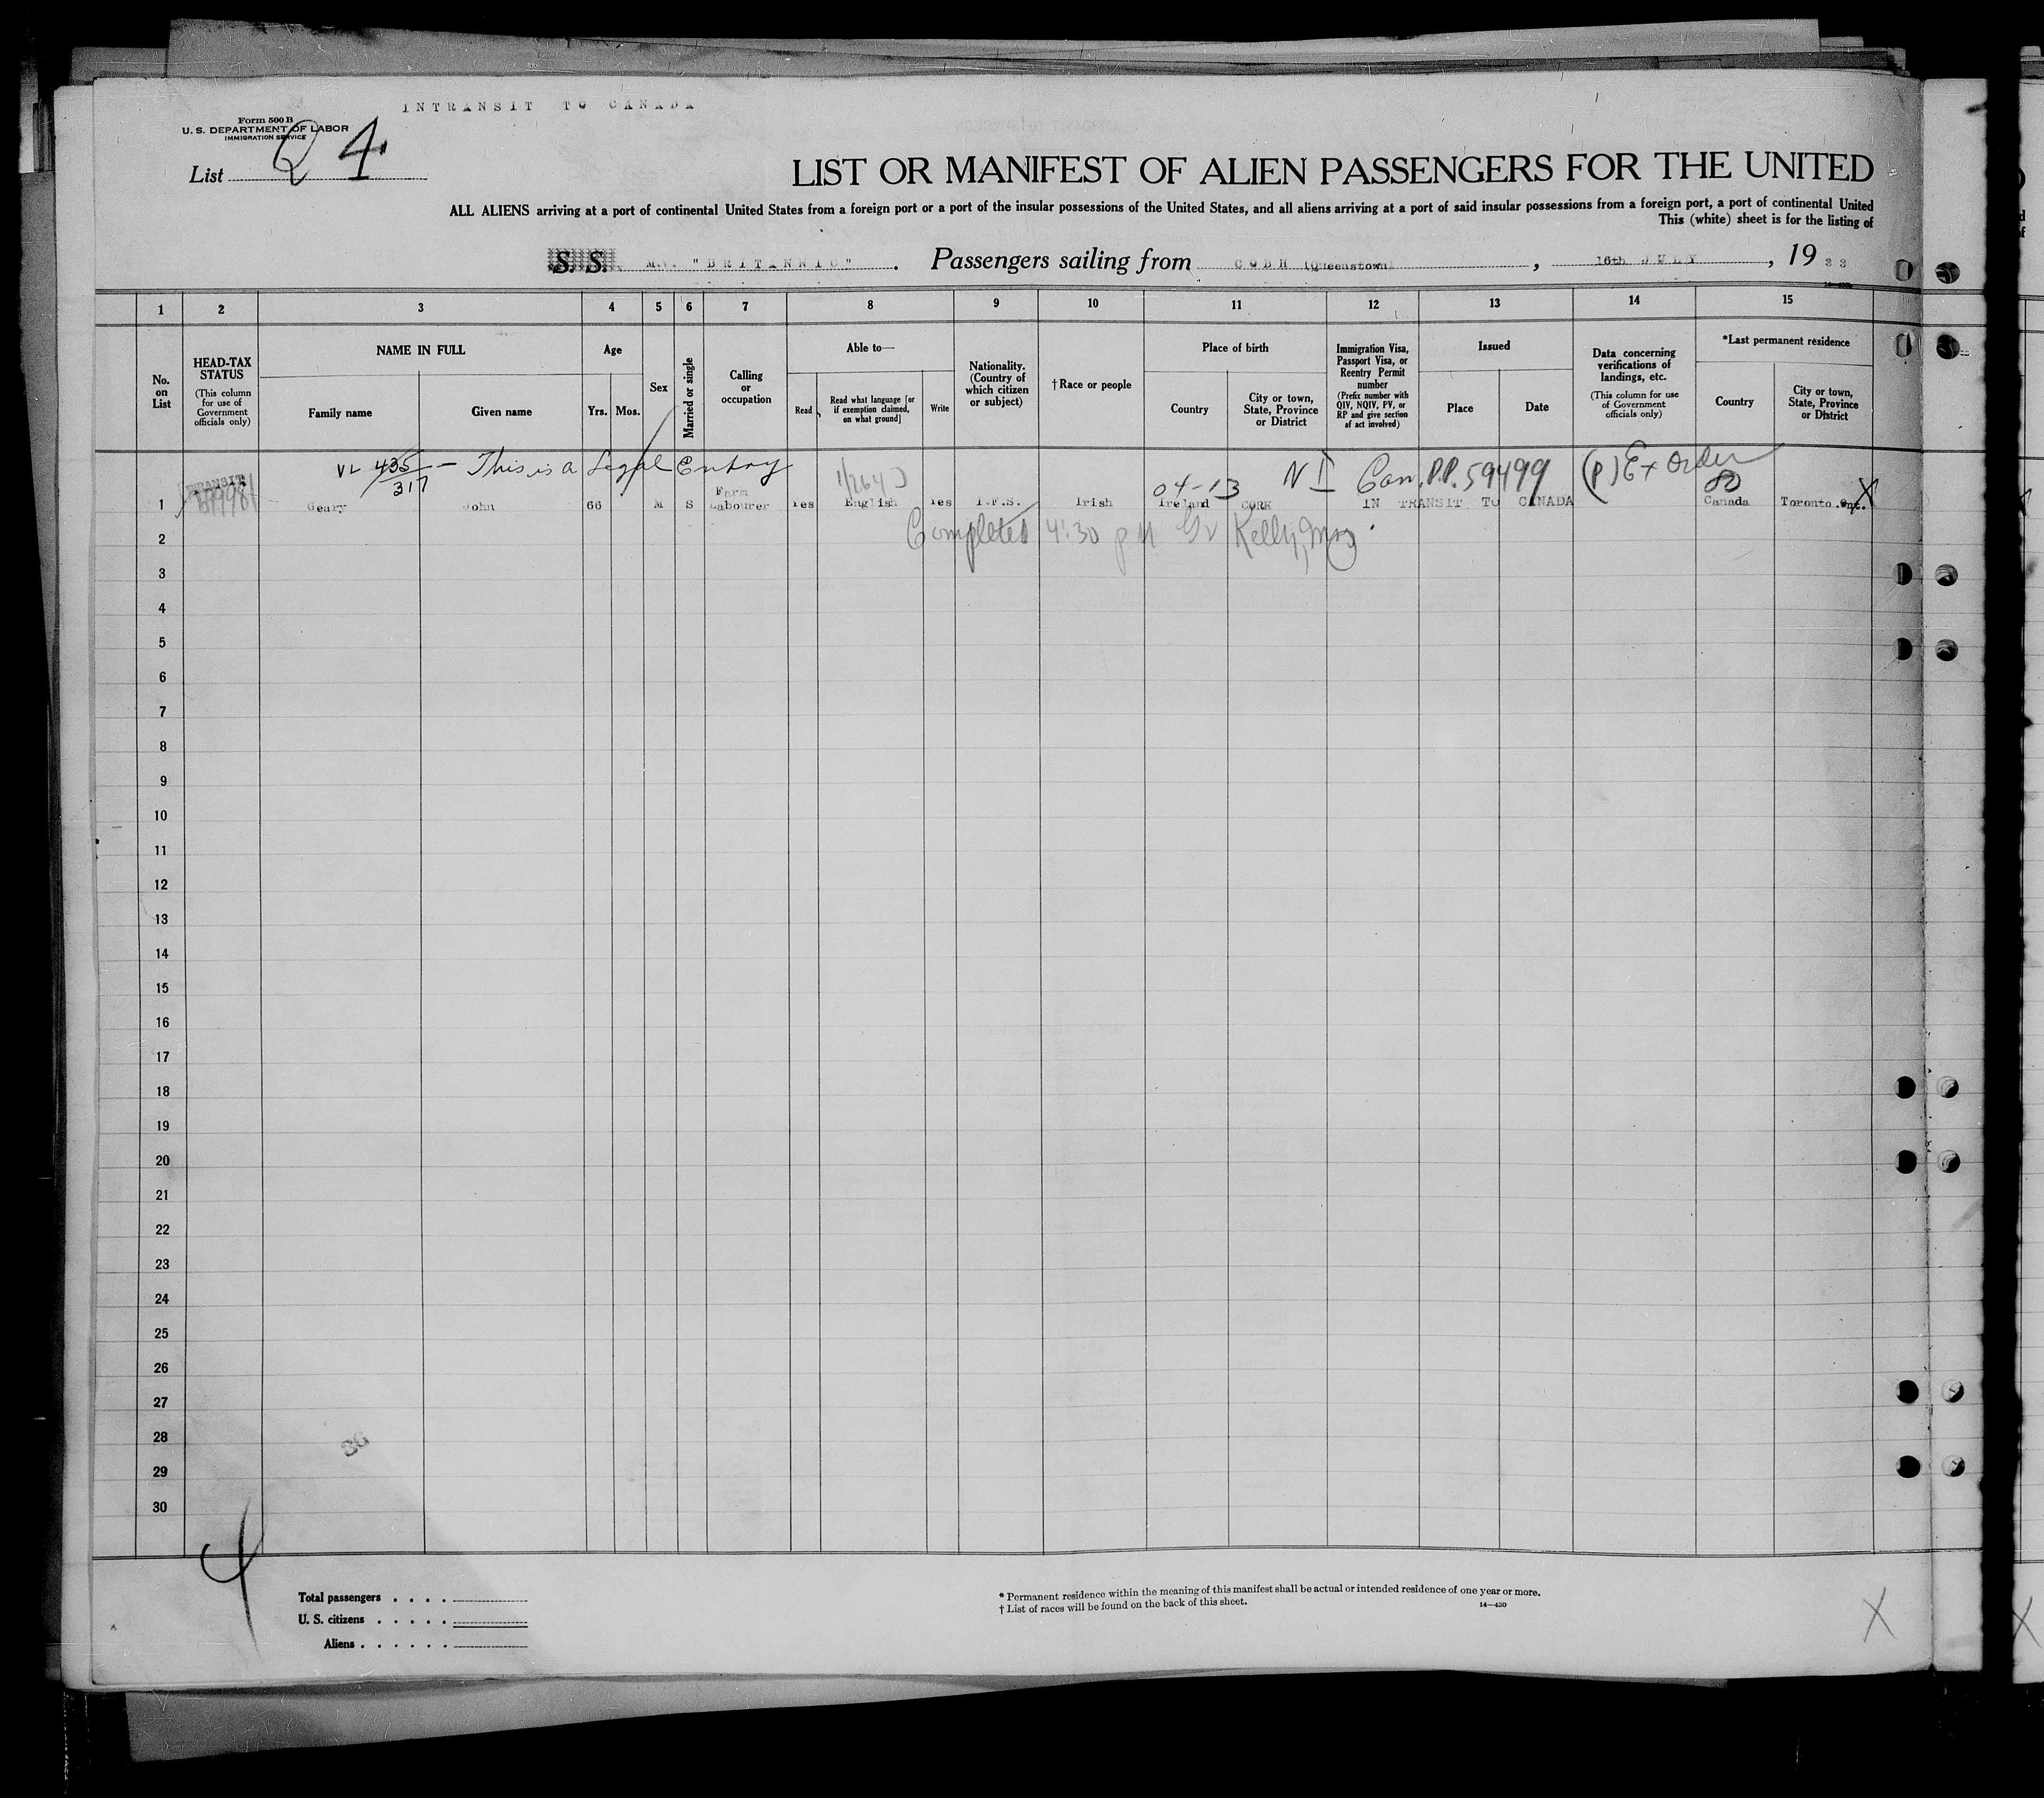 INTRANSIT TO CANADA
Form 500 B
U. S. DEPARTMENT OF LABOR
IMMIGRATION SERVICE
List 24
LIST OR MANIFEST OF ALIEN PASSENGERS FOR THE UNITED
ALL ALIENS arriving at a port of continental United States from a foreign port or a port of the insular possessions of the United States, and all aliens arriving at a port of said insular possessions from a foreign port, a port of continental United
This (white) sheet is for the listing of
S. S. M.V. "BRITANNIC". Passengers sailing from COBH (Queenstown), 16th JULY, 1933
1 2 3 4 5 6 7 8 9 10 11 12 13 14 15
No. on List
HEAD-TAX STATUS
(This column for use of Government officials only)
NAME IN FULL
Family name
Given name
Age
Yrs. Mos.
Sex
Married or single
Calling or occupation
Able to—
Read
Read what language [or if exemption claimed, on what ground]
Write
Nationality. (Country of which citizen or subject)
†Race or people
Place of birth
Country
City or town, State, Province or District
Immigration Visa, Passport Visa, or Reentry Permit number
(Prefix number with QIV, NQIV, PV, or RP and give section of act involved)
Issued
Place
Date
Data concerning verifications of landings, etc.
(This column for use of Government officials only)
*Last permanent residence
Country
City or town, State, Province or District
VL 435/317 — This is a Legal Entry
N I Can. P.P. 59499 (P) Ex Order
TRANSIT
04-13
1 Geary John 66 M S Farm Labourer Yes English Yes I.F.S. Irish Ireland CORK IN TRANSIT TO CANADA Canada Toronto.Ont.
2 Completed 4:30 PM Kelly, Insp
3
4
5
6
7
8
9
10
11
12
13
14
15
16
17
18
19
20
21
22
23
24
25
26
27
28
29
30
Total passengers . . . .
U. S. citizens . . . . .
Aliens . . . . . .
* Permanent residence within the meaning of this manifest shall be actual or intended residence of one year or more.
† List of races will be found on the back of this sheet.
14—430
X